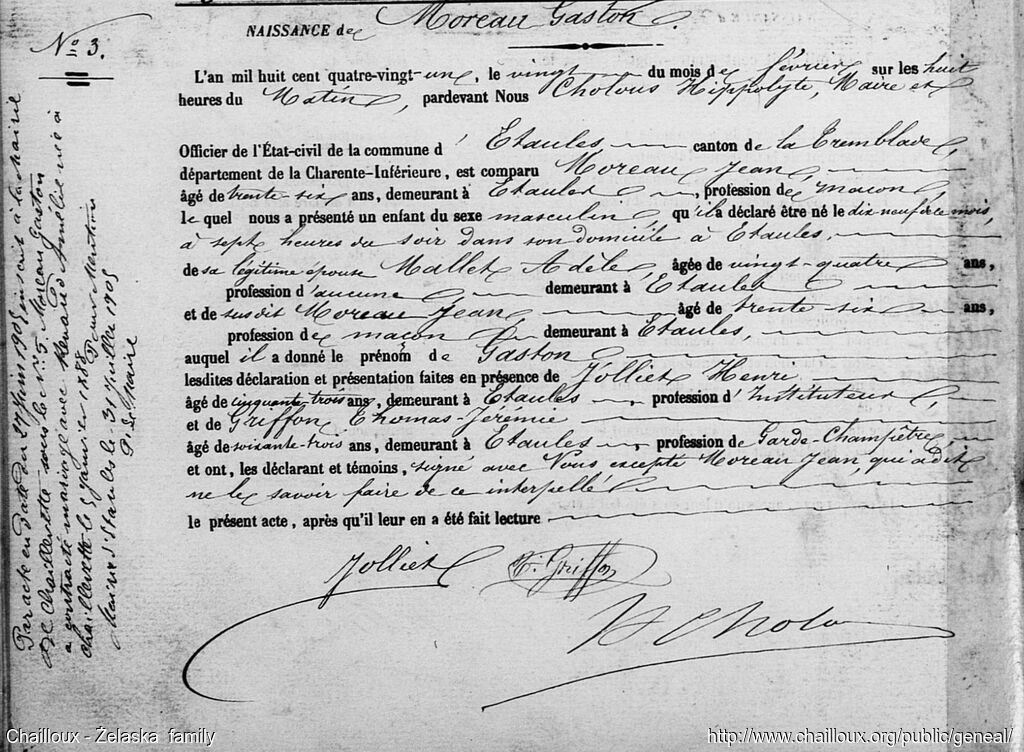 NAISSANCE de Moreau Gaston
No 3.
L'an mil huit cent quatre-vingt-un, le vingt du mois de février sur les huit
heures du Matin, pardevant Nous Cholous Hippolyte, Maire et
Officier de l'État-civil de la commune d'Etaules canton de la Tremblade,
département de la Charente-Inférieure, est comparu Moreau Jean,
âgé de trente-six ans, demeurant à Etaules, profession de maçon,
lequel nous a présenté un enfant du sexe masculin, qu'il a déclaré être né le dix-neuf de ce mois,
à sept heures du soir dans son domicile à Etaules,
de sa légitime épouse Mallet Adèle, âgée de vingt-quatre ans,
profession d'aucune, demeurant à Etaules
et de susdit Moreau Jean, âgé de trente six ans,
profession de maçon demeurant à Etaules,
auquel il a donné le prénom de Gaston
lesdites déclaration et présentation faites en présence de Jolliet Henri
âgé de cinquante-trois ans, demeurant à Etaules, profession d'Instituteur,
et de Griffon Thomas-Jérémie
âgé de soixante-trois ans, demeurant à Etaules, profession de Garde-Champêtre,
et ont, les déclarant et témoins, signé avec Nous excepté Moreau Jean, qui a dit
ne le savoir faire de ce interpellé
le présent acte, après qu'il leur en a été fait lecture
Jolliet T. Griffon
H Cholou
Par acte en date du 27 Juin 1905, inscrit à la mairie
de Chaillevette sous le No 5, Moreau Gaston
a contracté mariage avec Renaud Amélie née à
Chaillevette le 9 janvier 1888 Pour Mention
Mairie d'Etaules le 31 Juillet 1905
P. le Maire
Chailloux - Żelaska family
http://www.chailloux.org/public/geneal/